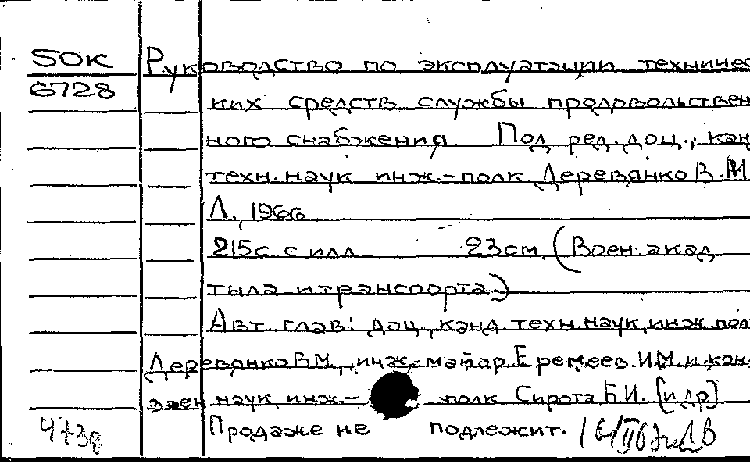 50К Руководство по эксплуатации техничес
6728
ких средств службы продовольствен
ного снабжения. Под ред. доц., кан
техн. наук инж.-полк Деревянко В.М
Л., 1966
215с. с илл 23см. (Воен. акад
тыла и транспорта.)
Авт. глав: доц., канд. техн. наук, инж. пол
Деревянко В.М., инж.-майор Еремеев И.М. и кан
наук инж.- полк Сирота Б.И. [и др]
Продаже не подлежит.